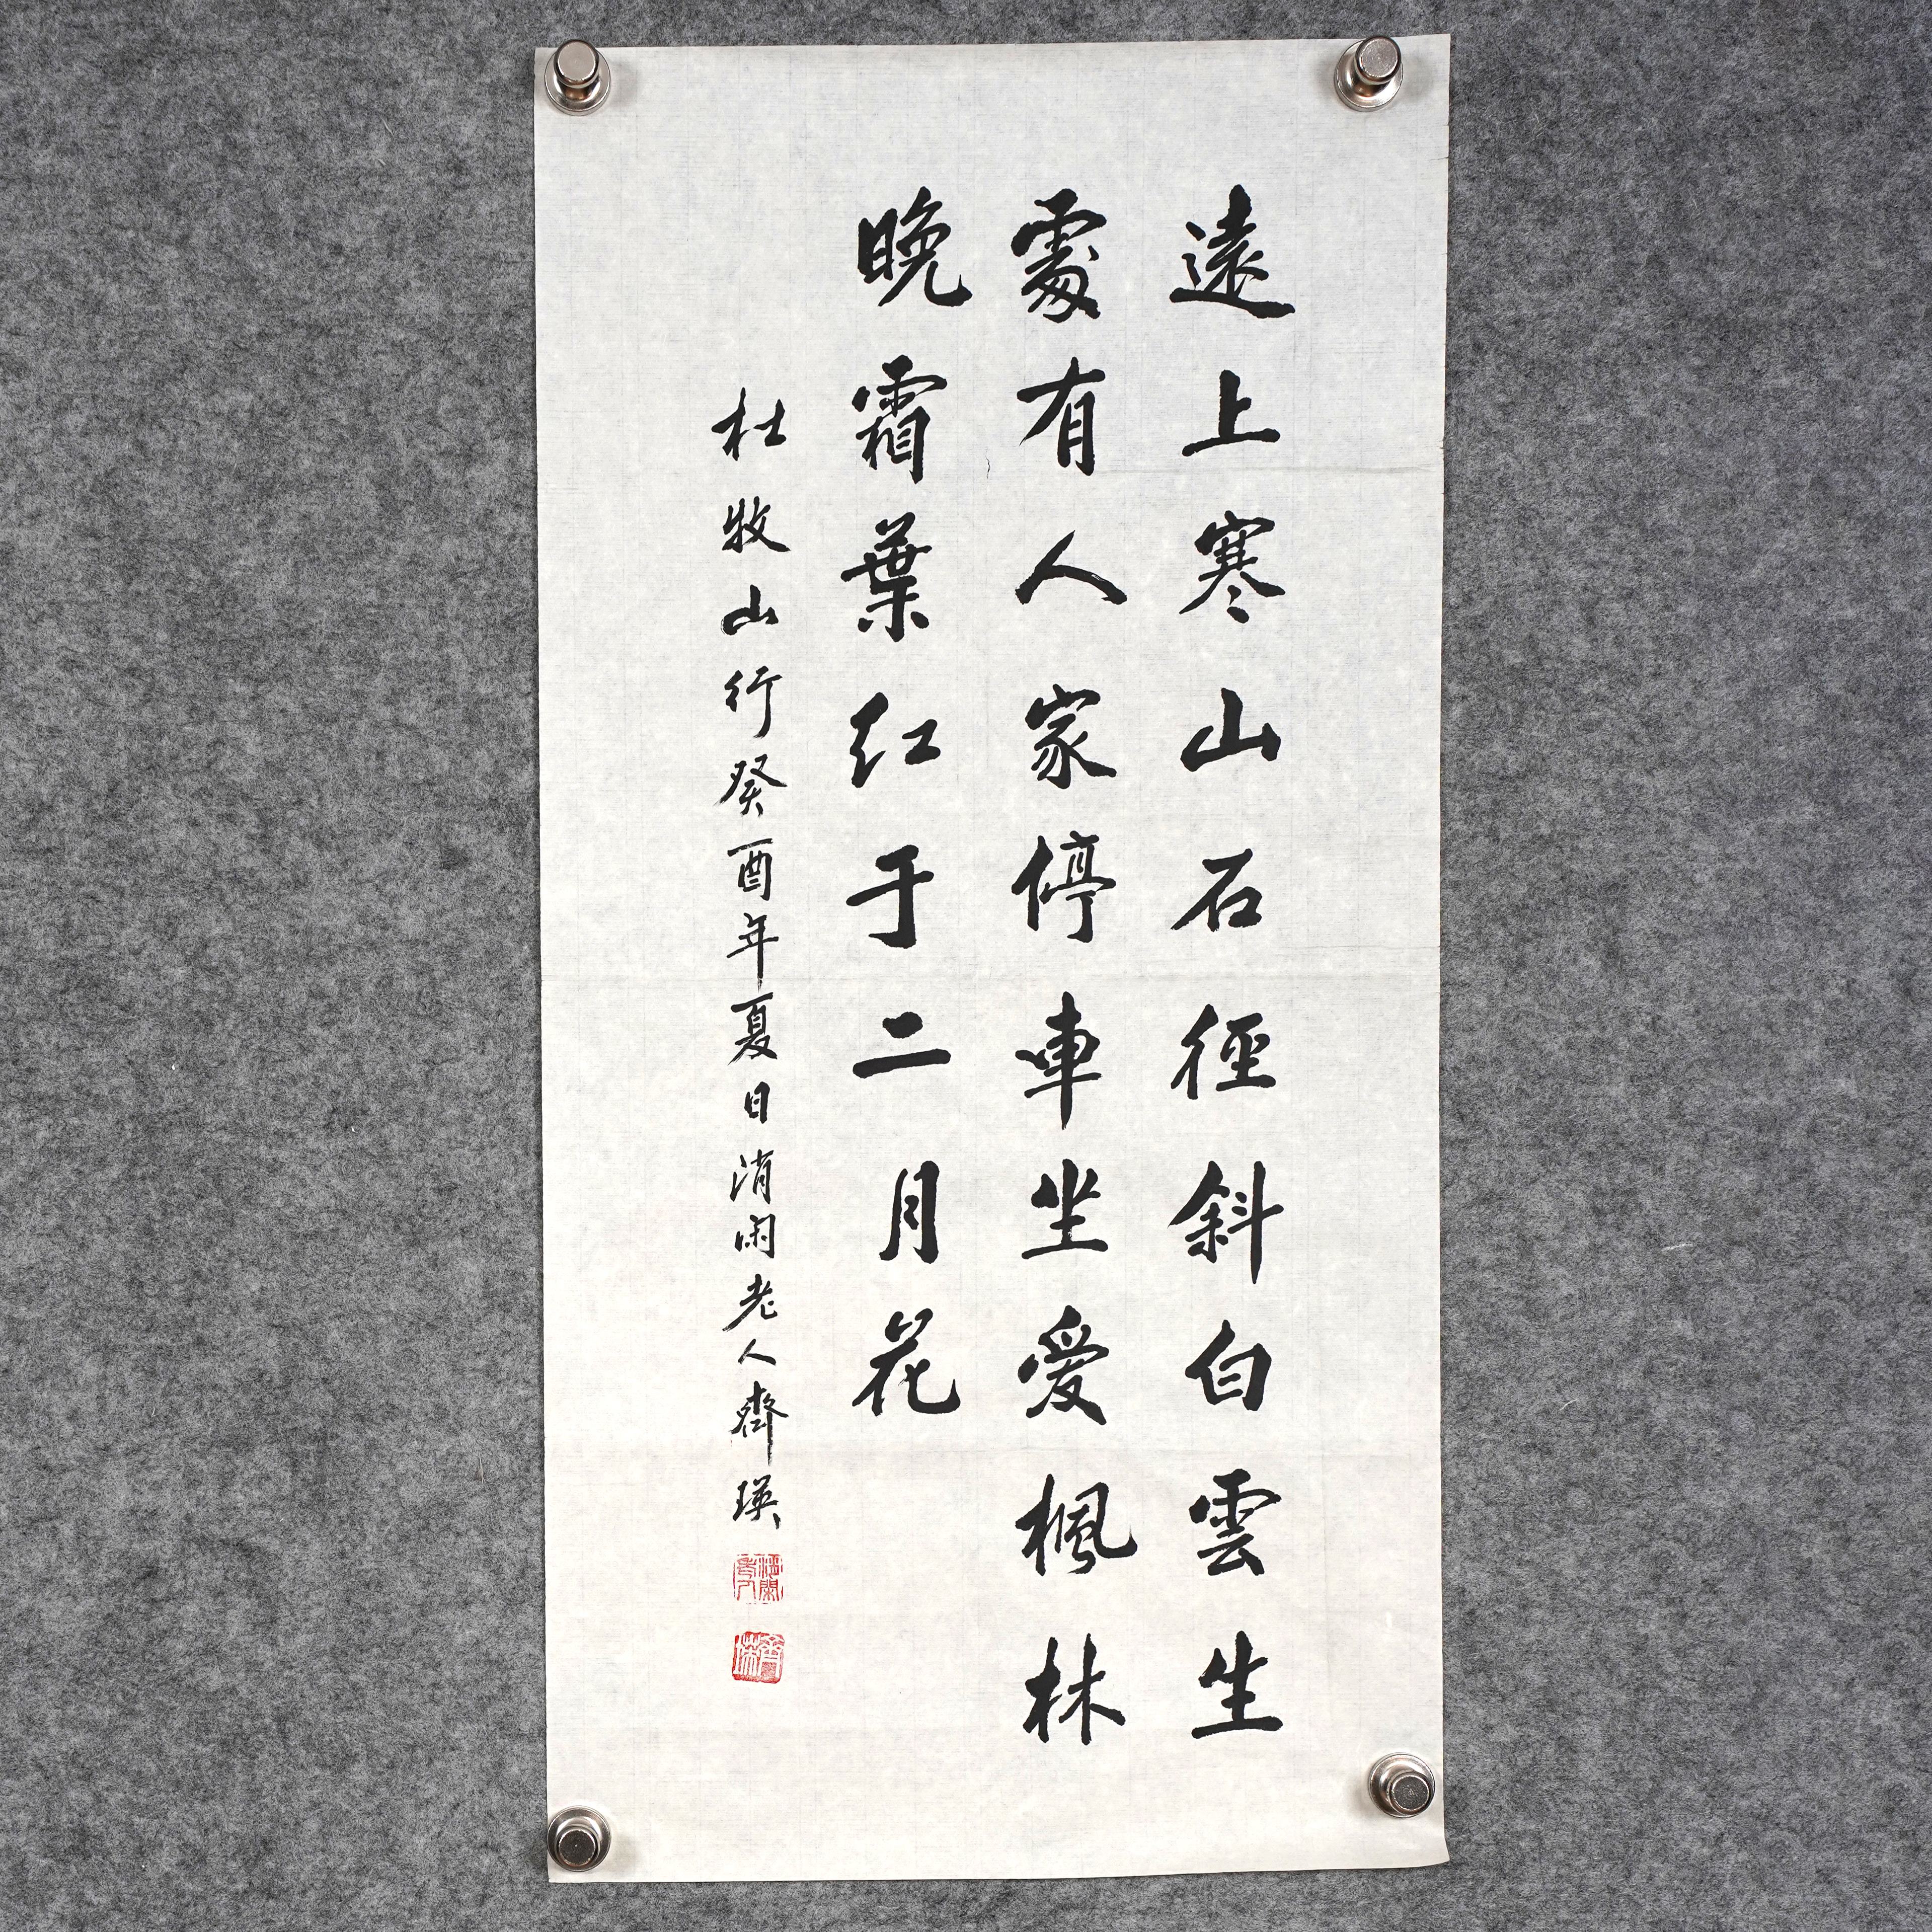 遠上寒山石徑斜白雲生
處有人家停車坐愛楓林
晚霜葉红于二月花
杜牧山行癸酉年夏日消闲老人齊瑛